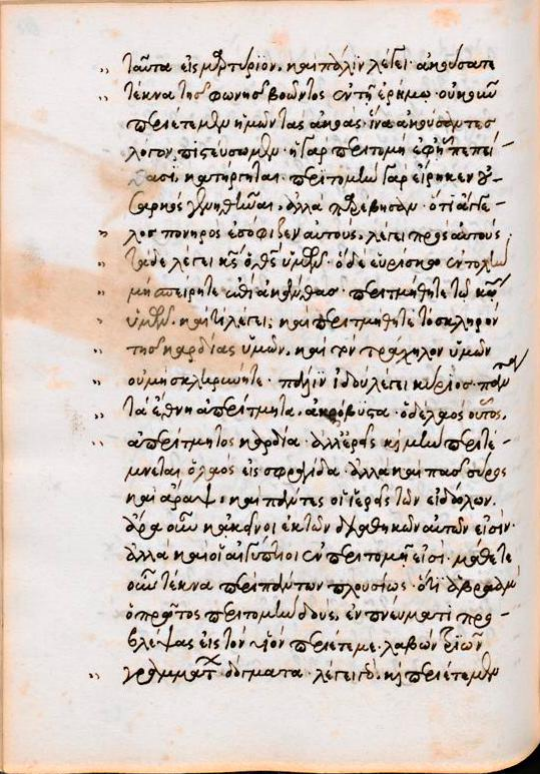 „ ταῦτα εἰς μαρτύριον. καὶ πάλιν λέγει· ἀκούσατε
„ τέκνα τῆς φωνῆς βοῶντος ἐν τῇ ἐρήμω· οὐκοῦν
περιέτεμεν ἡμῶν τὰς ἀκοάς· ἵνα ἀκούσαντες
λόγον πιστεύσωμεν· ἡ γὰρ περιτομὴ ἐφ' ἧ πεποί-
θασι, κατήργηται. περιτομὴν γὰρ εἴρηκεν οὐ
σαρκὸς γενηθῆναι. ἀλλὰ παρέβησαν· ὅτι ἄγγε-
„ λος πονηρὸς ἐσόφιζεν αὐτούς. λέγει πρὸς αὐτούς
„ τάδε λέγει κς ὁ θς ὑμῶν· ὁ δὲ εὑρίσκω ἐντολὴν
„ μὴ σπείρητε ἐπὶ ἀκάνθας· περιτμήθητε τῷ κω
„ ὑμῶν. καὶ τί λέγει; καὶ περιτμήθητε τὸ σκληρὸν
„ τῆς καρδίας ὑμῶν. καὶ τὸν τράχηλον ὑμῶν
„ οὐ μὴ σκληρυνῆτε· πάλιν ἰδοὺ λέγει κύριος· πάντα
„ τὰ ἔθνη ἀπερίτμητα. ἀκρόβυστα· ὁ δὲ λαὸς οὗτος.
„ ἀπερίτμητος καρδία· ἀλλ' ἐρεῖς καὶ μὴν περιτέ-
μνεται ὁ λαὸς εἰς σφραγίδα· ἀλλὰ καὶ πᾶς σύρος
καὶ ἄραψ. καὶ πάντες οἱ ἱερεῖς τῶν εἰδώλων.
ἄρα οὖν κἀκεῖνοι ἐκ τῶν διαθηκῶν αὐτῶν εἰσίν·
ἀλλὰ καὶ οἱ αἰγύπτιοι ἐν περιτομῇ εἰσί· μάθετε
οὖν τέκνα περὶ πάντων πλουσίως· ὅτι ἀβραὰμ
ὁ πρῶτος περιτομὴν δούς. ἐν πνεύματι προ-
βλέψας εἰς τὸν υἱὸν περιέτεμε. λαβὼν τριῶν
„ γραμμάτ δόγματα· λέγει γὰρ. καὶ περιέτεμεν